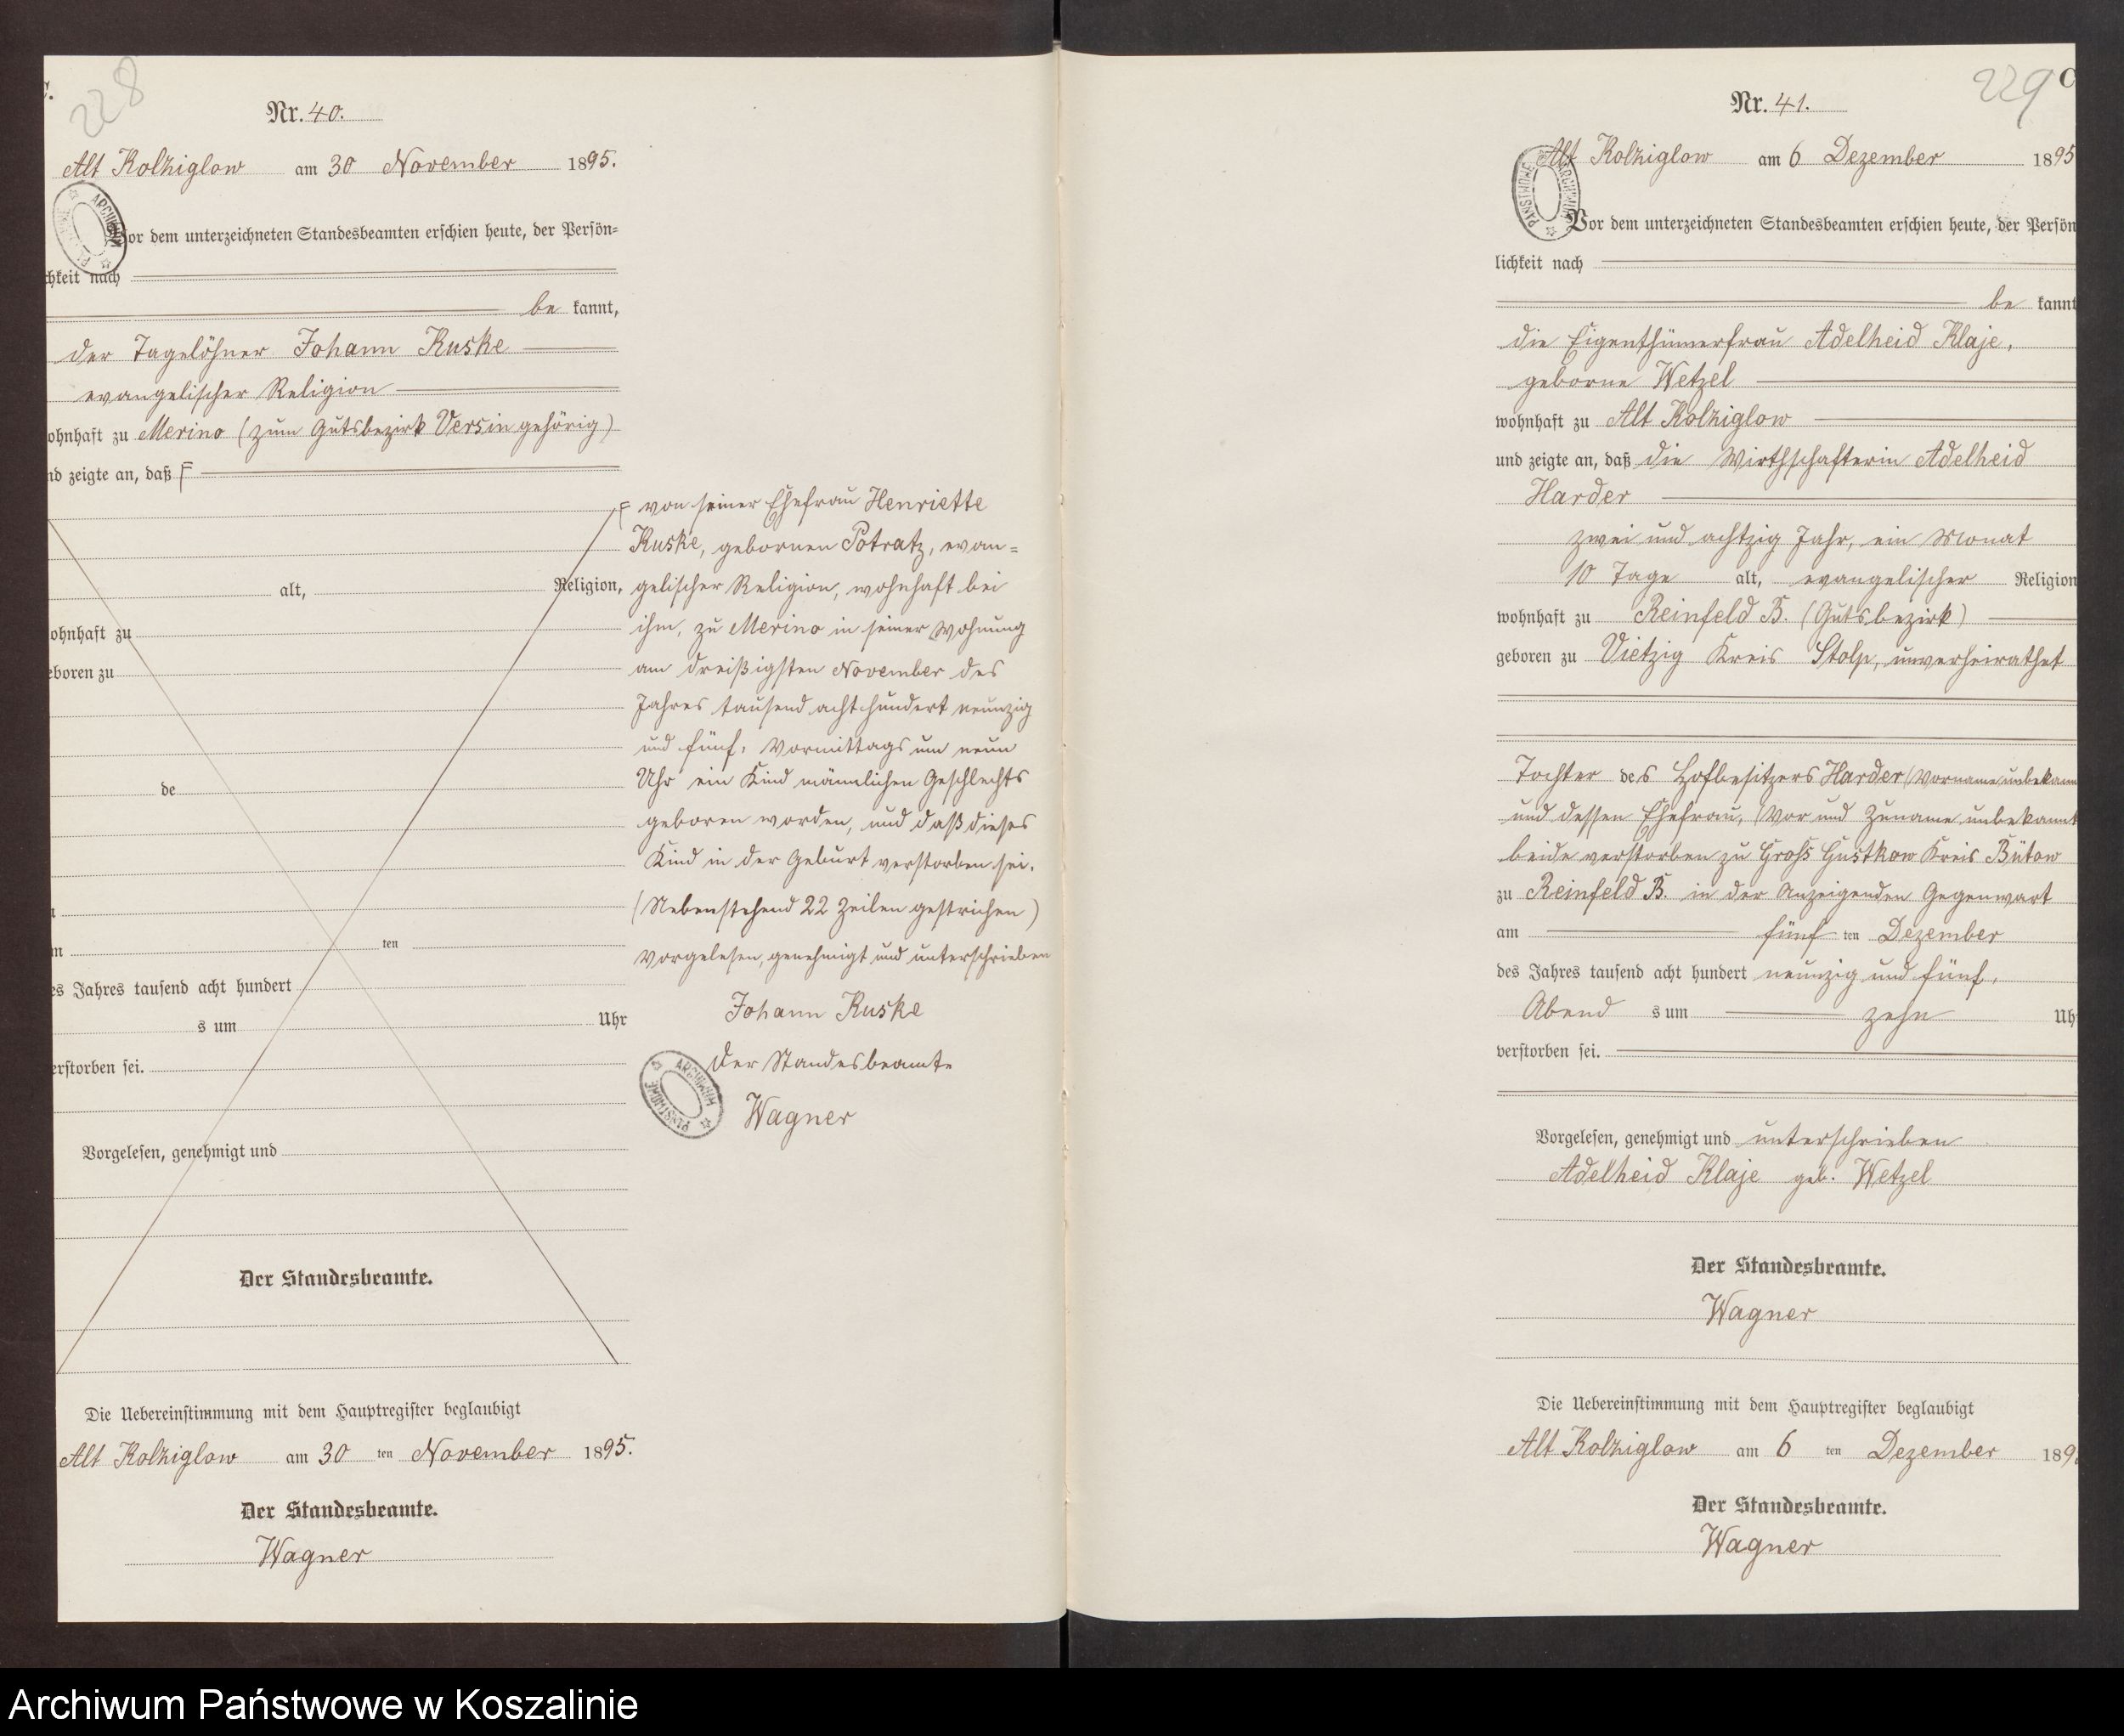 C.
228
Nr. 40.
Alt Kolziglow am 30 November 1895.
Vor dem unterzeichneten Standesbeamten erschien heute, der Persön-
chkeit nach
be kannt,
der Tagelöhner Johann Kuske
evangelischer Religion
ohnhaft zu Merino (zum Gutsbezirk Versin gehörig)
nd zeigte an, daß F
alt, Religion,
ohnhaft zu
eboren zu
de
ten
es Jahres tausend acht hundert
s um Uhr
erstorben sei.
Vorgelesen, genehmigt und
Der Standesbeamte.
Die Uebereinstimmung mit dem Hauptregister beglaubigt
Alt Kolziglow am 30 ten November 1895.
Der Standesbeamte.
Wagner
F von seiner Ehefrau Henriette
Kuske, gebornen Potratz, evan=
gelischer Religion, wohnhaft bei
ihm, zu Merino in seiner Wohnung
am dreißigsten November des
Jahres tausend acht hundert neunzig
und fünf, Vormittags um neun
Uhr ein Kind männlichen Geschlechts
geboren worden, und daß dieses
Kind in der Geburt verstorben sei.
(Nebenstehend 22 Zeilen gestrichen)
Vorgelesen, genehmigt und unterschrieben
Johann Kuske
Der Standesbeamte
ARCHIWUM PAŃSTWOWE
Wagner
229
C
Nr. 41.
Alt Kolziglow am 6 Dezember 1895
ARCHIWUM PAŃSTWOWE
Vor dem unterzeichneten Standesbeamten erschien heute, der Persön
lichkeit nach
be kannt
die Eigenthümerfrau Adelheid Klaje,
geborne Wetzel
wohnhaft zu Alt Kolziglow
und zeigte an, daß die Wirthschafterin Adelheid
Harder
zwei und achtzig Jahr, ein Monat
10 Tage alt, evangelischer Religion
wohnhaft zu Reinfeld B. (Gutsbezirk)
geboren zu Vietzig Kreis Stolp, unverheirathet
Tochter des Hofbesitzers Harder (Vorname unbekann
und dessen Ehefrau, (Vor und Zuname unbekannt
beide verstorben zu Groß Gustkow Kreis Bütow
zu Reinfeld B. in der Anzeigenden Gegenwart
am fünf ten Dezember
des Jahres tausend acht hundert neunzig und fünf,
Abend s um zehn Uh
verstorben sei.
Vorgelesen, genehmigt und unterschrieben
Adelheid Klaje geb. Wetzel
Der Standesbeamte.
Wagner
Die Uebereinstimmung mit dem Hauptregister beglaubigt
Alt Kolziglow am 6 ten Dezember 189
Der Standesbeamte.
Wagner
Archiwum Państwowe w Koszalinie